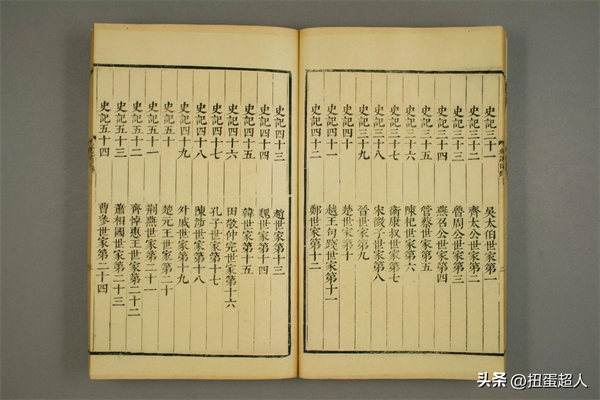 史記三十一 吳太伯世家第一
史記三十二 齊太公世家第二
史記三十三 魯周公世家第三
史記三十四 燕召公世家第四
史記三十五 管蔡世家第五
史記三十六 陳杞世家第六
史記三十七 衛康叔世家第七
史記三十八 宋微子世家第八
史記三十九 晉世家第九
史記四十 楚世家第十
史記四十一 越王句踐世家第十一
史記四十二 鄭世家第十二
史記四十三 趙世家第十三
史記四十四 魏世家第十四
史記四十五 韓世家第十五
史記四十六 田敬仲完世家第十六
史記四十七 孔子世家第十七
史記四十八 陳涉世家第十八
史記四十九 外戚世家第十九
史記五十 楚元王世家第二十
史記五十一 荊燕世家第二十一
史記五十二 齊悼惠王世家第二十二
史記五十三 蕭相國世家第二十三
史記五十四 曹參世家第二十四
头条 @扭蛋超人